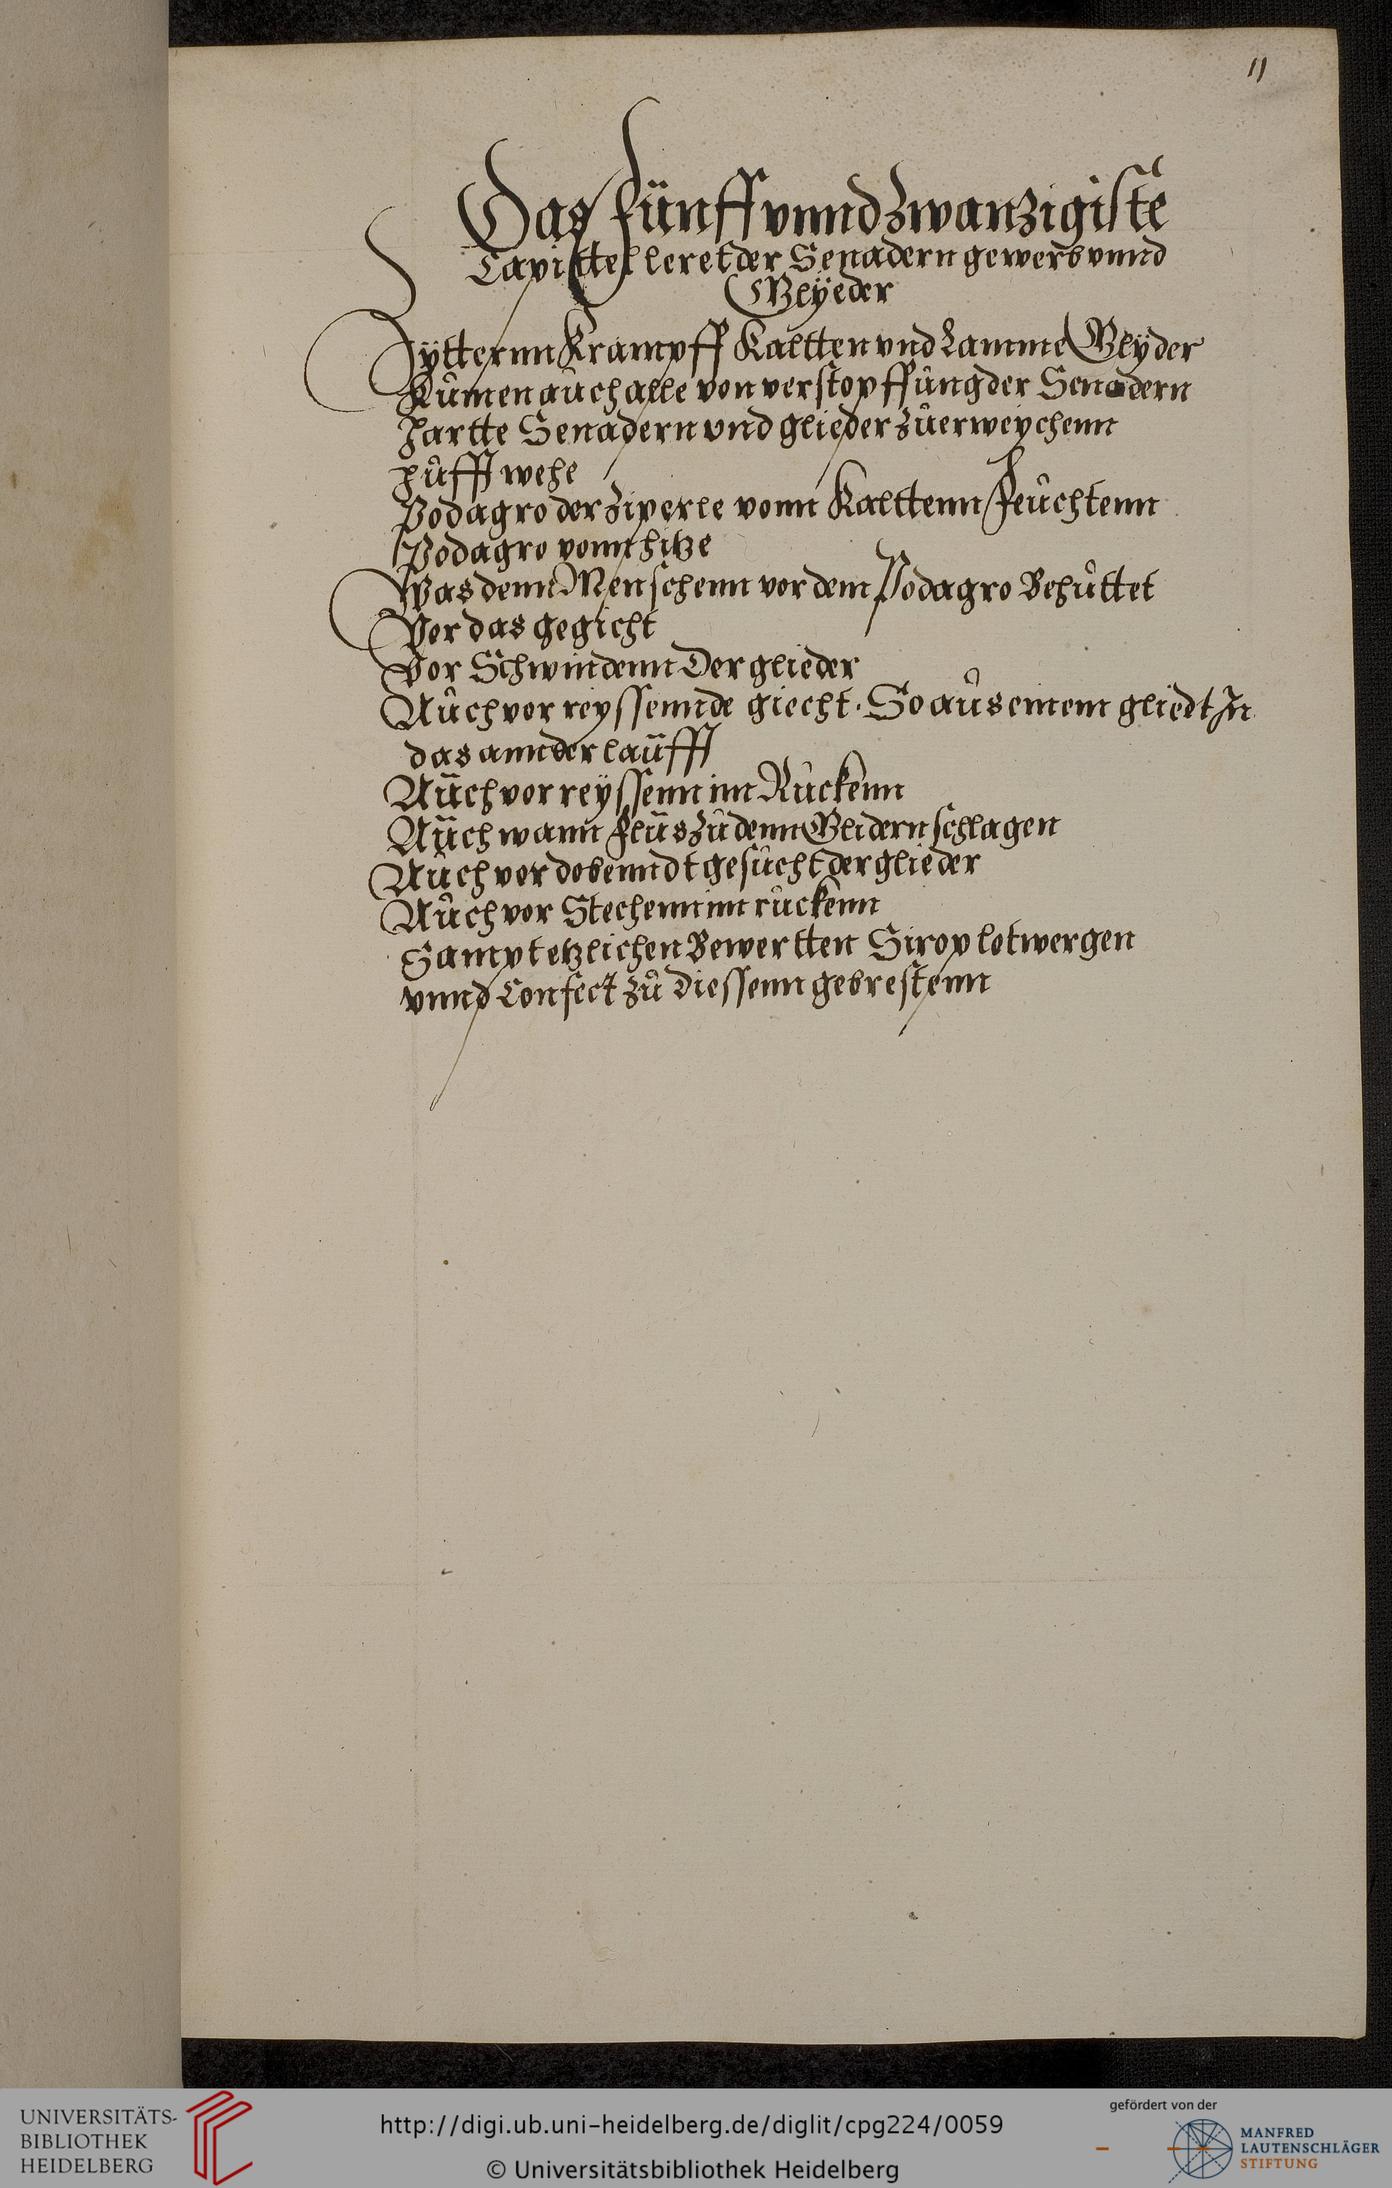 11
Das fünff vnnd zwanzigiste
Capittel leret der Senadern gewerb vnnd
Glÿeder
Zÿtternn Krampff Kaltten vnd Lamme Glÿder
Kůmen aůch alle von verstopffůng der Senadern
Hartte Senadern vnd glieder zůerweychenn
Hůfft wehe
Podagro der ziperle vonn Kalttenn feůchtenn
Podagro vonn hitze
Was denn Menschenn vor dem Podagro Behůttet
Vor das gegicht
Vor Schwindenn Der glieder
Aůch vor reyssennde giecht. So aůs einem gliedt In
das annder laüfft
Aüch vor reÿssenn im Růckenn
Aüch wann flüs zů denn Glidern schlagen
Aůch vor dobenndt gesůcht der glieder
Aůch vor Stechenn im růckenn
Sampt etzlichen Bewertten Sirop lotwergen
vnnd Confect zů diessenn gebrestenn
UNIVERSITÄTS-
BIBLIOTHEK
HEIDELBERG
http://digi.ub.uni-heidelberg.de/diglit/cpg224/0059
© Universitätsbibliothek Heidelberg
gefördert von der
MANFRED
LAUTENSCHLÄGER
STIFTUNG